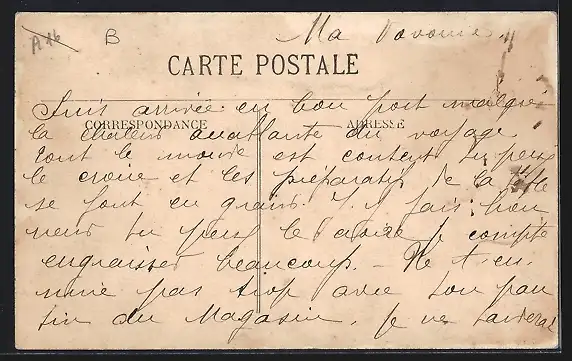 A 16 B Ma
CARTE POSTALE
Suis arrivée en bon port malgré
CORRESPONDANCE ADRESSE
la chaleur du voyage
tout le monde est content tu peux
le croire et les préparatifs de la
se font en grand. il fait bien
tu peux le croire je compte
engraisser beaucoup. — Ne t'en
nuie pas trop avec ton pan
tin du Magasin, je ne tarderai